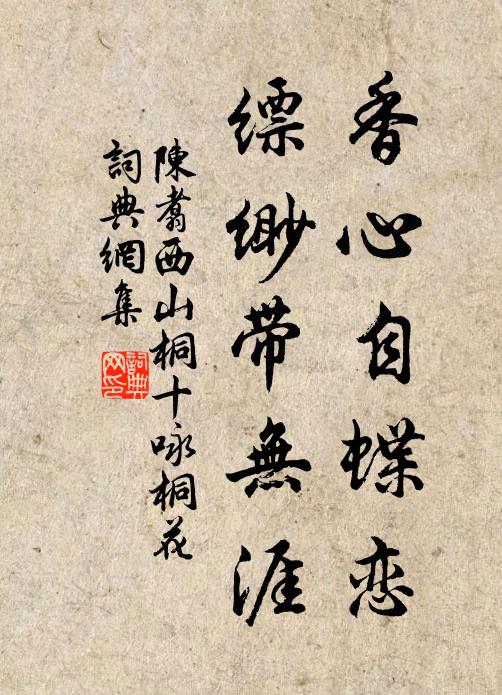 香心自蝶恋
缥缈带無涯
陳翥西山桐十咏桐花
詞典網集
詞典網印